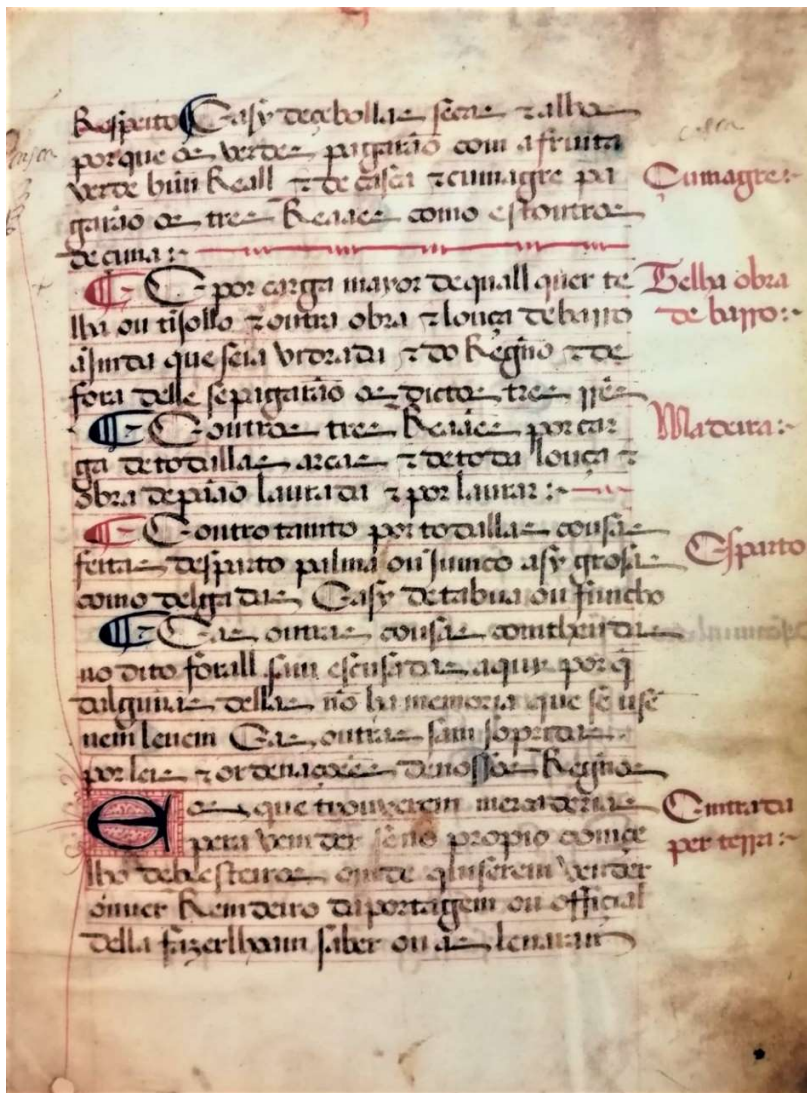 Respeito E asy de çebollas secas e alhos
porque os verdes pagarão com a fruita
verde huũ Reall e de casca e çumagre pa
Çumagre
garão os tres Reaaes como estoutros
de cima
E por carga mayor de quall quer te
Telha obra
lha ou tisollo e outra obra e louça de barro
de barro
ajnda que seia vidrada e do Regno e de
fora delle se pagarão os dictos tres rrs
E outros tres Reaaes por car
Madeira
ga de todallas arcas e de toda louça e
obra de páao laurada e por laurar
E outro tamto por todallas cousas
Esparto
feitas desparto palma ou Junco asy grosas
como delgadas E asy de tabua ou funcho
E as outras cousas comtheudas
no dito forall sam escusadas aquy por q̃
dalguũas dellas nõ ha memoria que se usẽ
nem levem E as outras sam sopridas
por leis e ordenaçoões de nossos Regnos
E os que trouverem mercadorias
Emtrada
pera vemder se no propio comçe
per terra
lho de besteiros omde quiserem vender
ouuer Remdeiro da portagem ou official
della fazerlhoam saber ou as leuaram